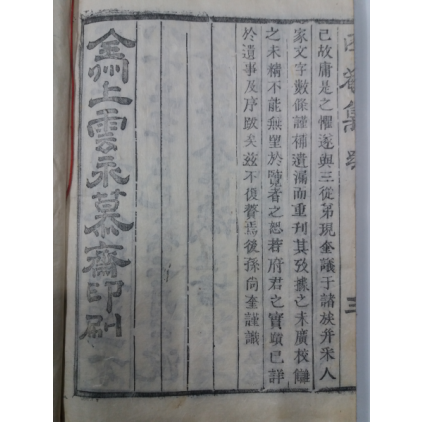 已故庸是之懼遂與三從弟現奎議于諸族幷采人
家文字數條謹補遺漏而重刊其攷據之未廣校讎
之未精不能無望於覽者之恕若府君之實蹟已詳
於遺事及序跋矣玆不復贅焉後孫尙奎謹識
全州上雲永慕齋印刷